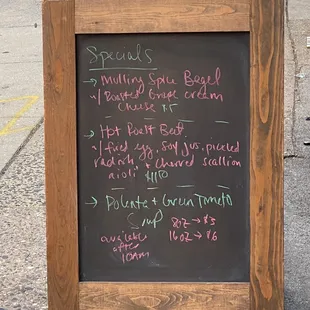 Specials
→ Mulling Spice Bagel
w/ Roasted Grape Cream
Cheese $5
→ Hot Roast Beef
w/ fried egg, Soy jus, pickled
radish + charred scallion
aioli
→ Polenta + Green Tomato
Soup
8oz → $3
16oz → $6
available
after
10am